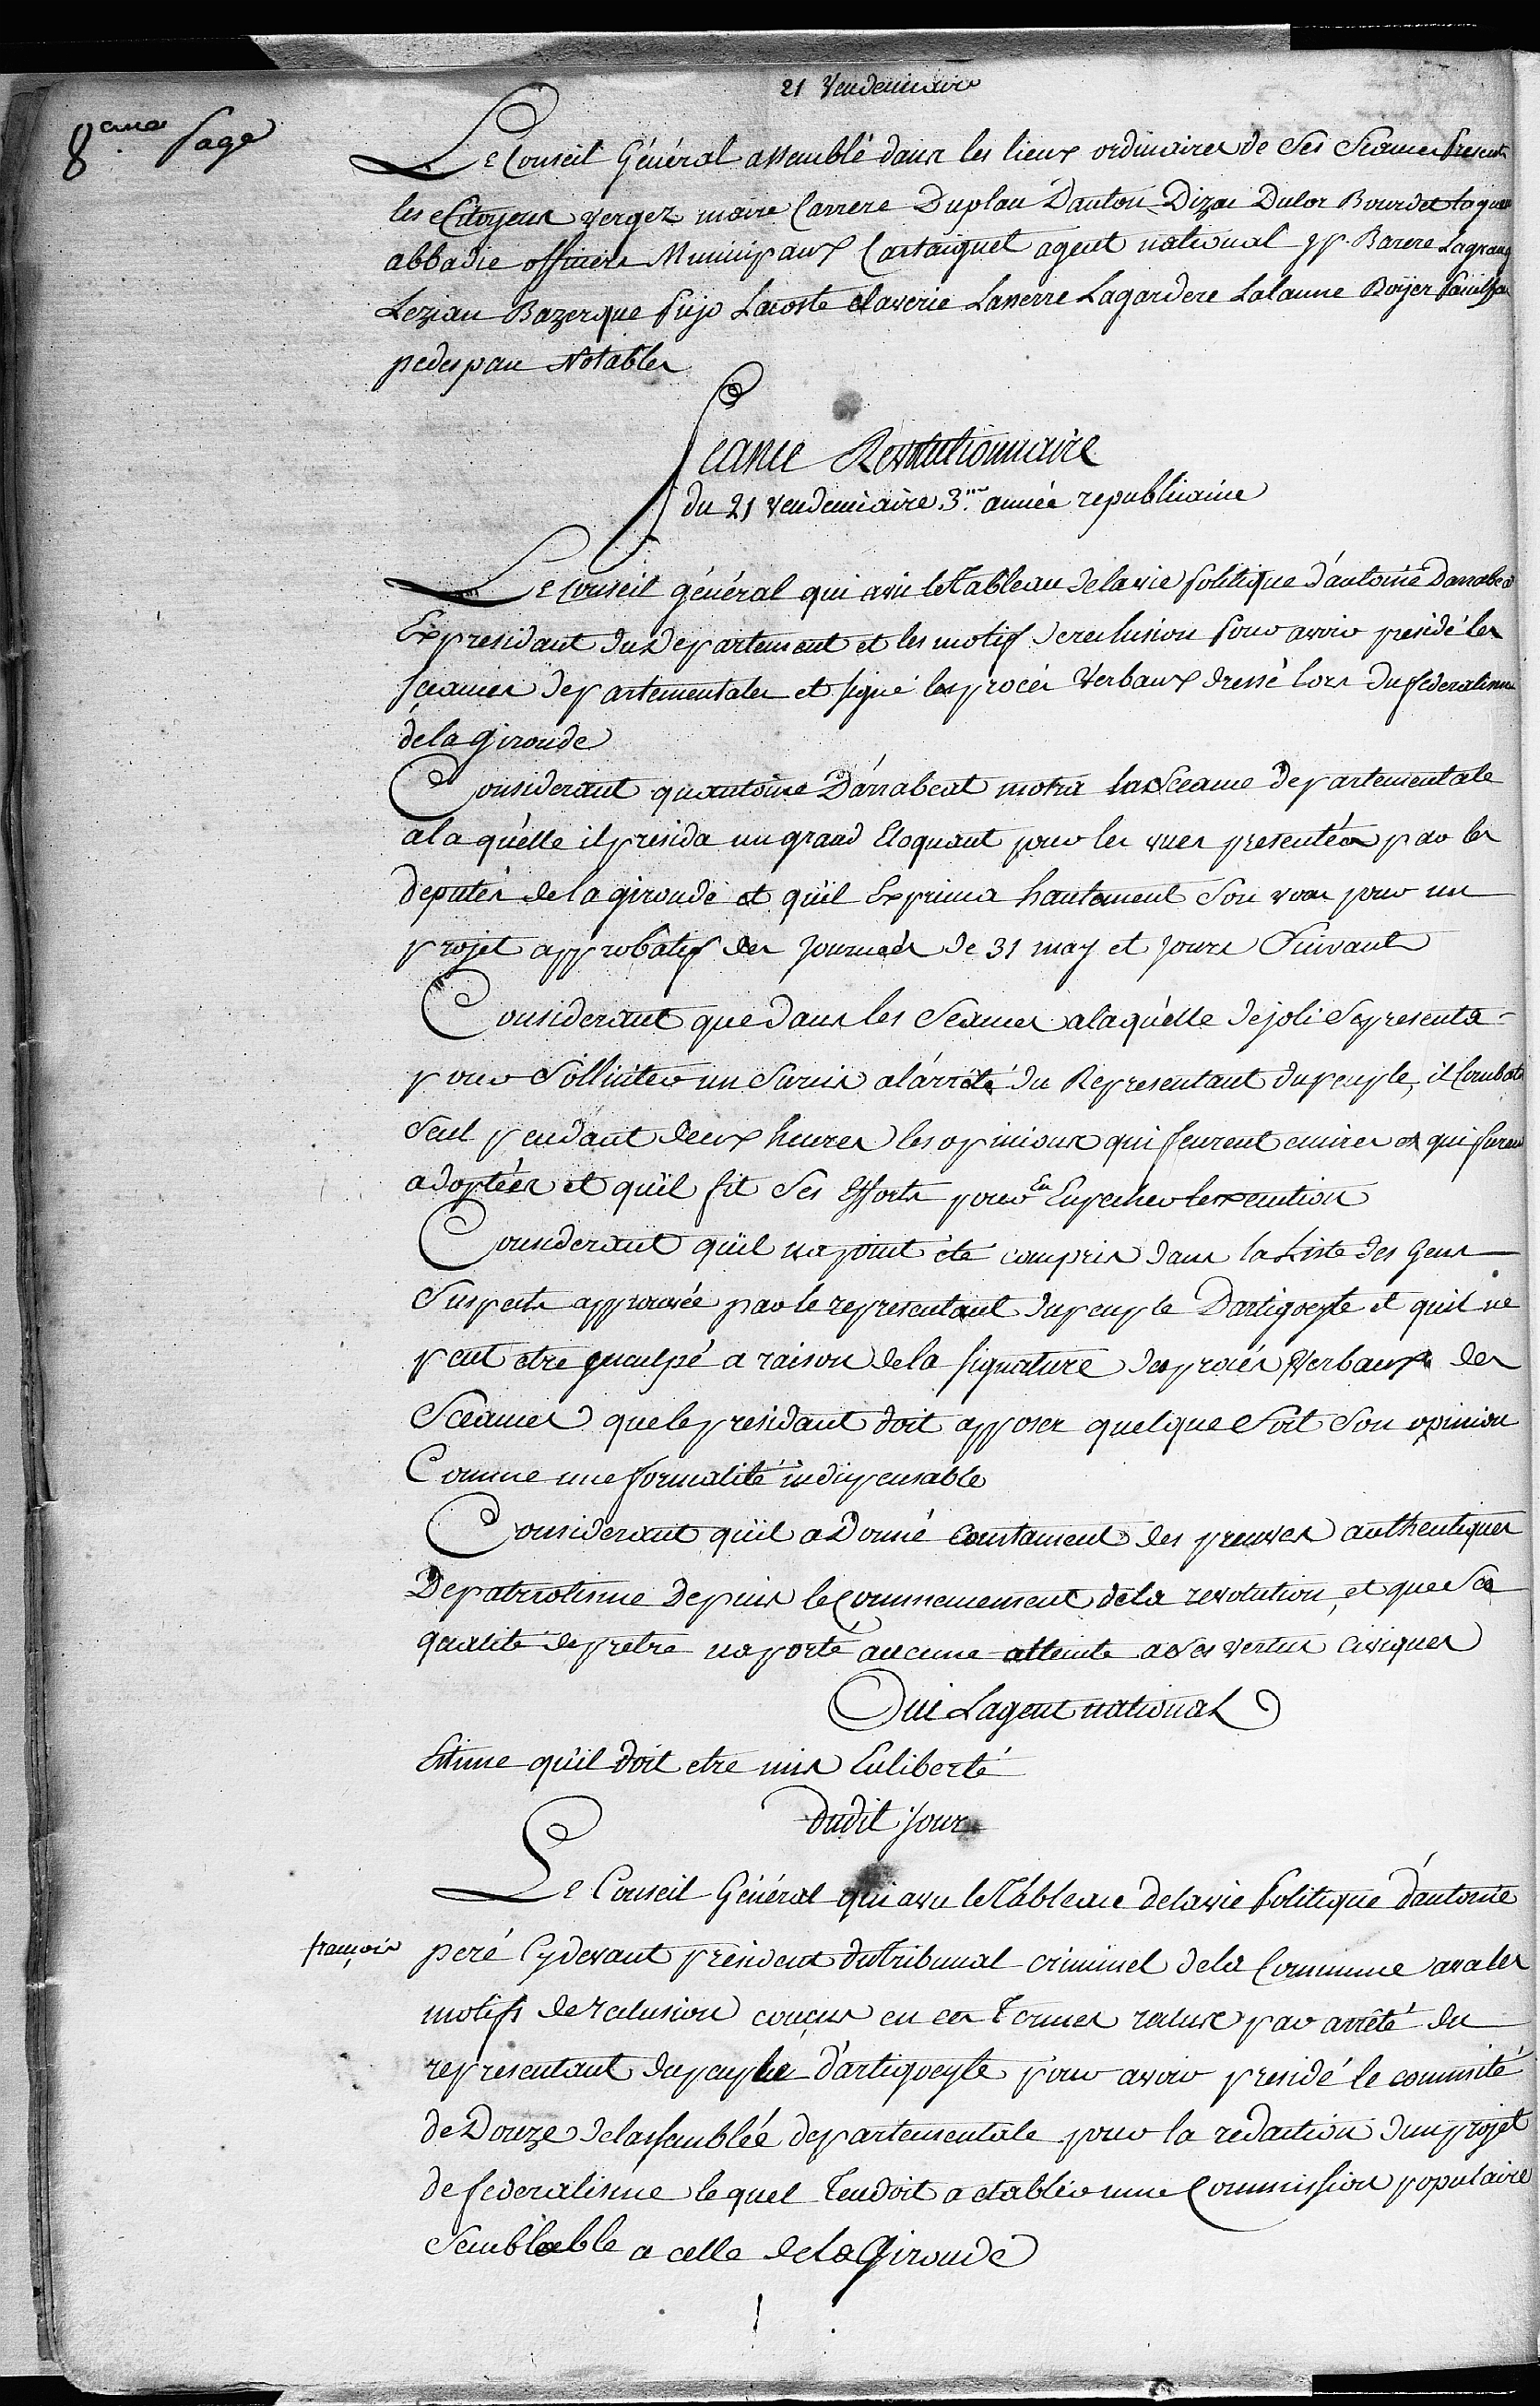 21 Vendemiaire
8eme page
Le Conseil Général assemblé dans les lieux ordinaires de Ses Seances Presents
les Citoyens vergez maire Carrere Duplan Danton Dizac Dulor Bourdet
abbadie officiers Municipaux Castaignet agent national pp. Barere Lagrange
Lezian Bazerque pujo Lacoste Claverie Lasserre Lagardere Lalanne Boÿer
pedespau Notables
Seance Revolutionnaire
du 21 vendemiaire 3me année republicaine
Le conseil général qui a vu le Tableau de la vie politique d'antoine Darrabeat
Expresidant du Departement et les motifs de reclusion pour avoir presidé les
sceances departementales et signé les procés Verbaux dressé lors du federalisme
de la gironde
Considerant quantoine Darrabeat motra la Sceance departementale
a la quelle il presida un grand Eloquant pour les vues presentées par les
deputés de la gironde et quil Exprima hautement Son voeu pour un
projet approbatif des journées de 31 may et jours Suivants
Considerant que dans les Seances a laquelle dejoli Se presenta
pour Solliciter un Sursis a l'arrêté du Representant du peuple, il Combatit
Seul pendant deux heures les opinions qui feurent emises et qui furent
adoptées et quil fit Ses Efforts pour En Enpecher lexecution
Considerant quil na point été compris dans la Liste des Gens
Suspects approuvée par le representant du peuple Dartigoeyte et quil ne
peut etre inculpé a raison de la signature des procés Verbaux des
Sceances que le presidant doit apposer quelque Soit Son opinion
Comme une formalité indispensable
Considerant quil a Donné constament des preuves authentiques
De patriotisme depuis le Commencement de la revolution, et que Sa
qualité de pretre na porté aucune atteinte a Ses vertus civiques
Oui Lagent national
Estime qu'il doit etre mis En liberté
dudit jour
Le Conseil Général qui a vu le Tableau de la vie Politique d'antoine
françois peré Cydevant president du Tribunal criminel de la Commune a vu les
motifs de reclusion conçus en ces Termes reclus par arrêté du
representant du peuple d'artigoeyte pour avoir presidé le commité
de Douze de lassemblée departementale pour la redaction dun projet
de federalisme le quel Tendoit a etablir une Commission populaire
Semblable a celle de la Gironde